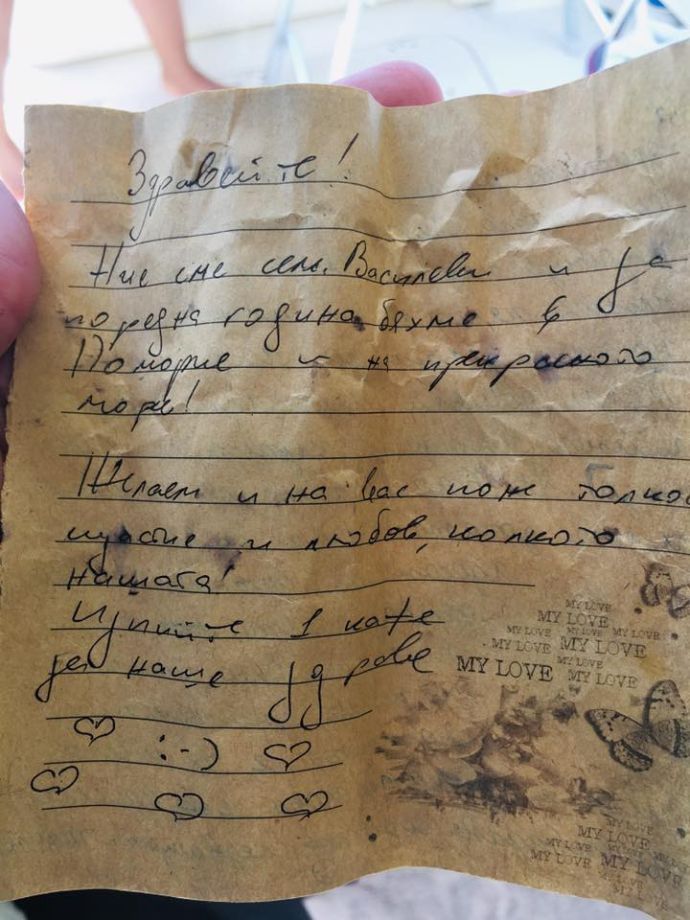 Здравейте!
Ние сме сем. Василеви и за
поредна година бяхме в
Поморие и на прекрасното
море!
Желаем и на вас поне толкова
щастие и любов, колкото
нашата!
Изпийте 1 кафе
за наше здраве
:-)
MY LOVE
MY LOVE
MY LOVE MY LOVE MY LOVE
MY LOVE MY LOVE
MY LOVE
MY LOVE MY LOVE
MY LOVE
MY LOVE
MY LOVE
MY LOVE MY LOVE
MY LOVE